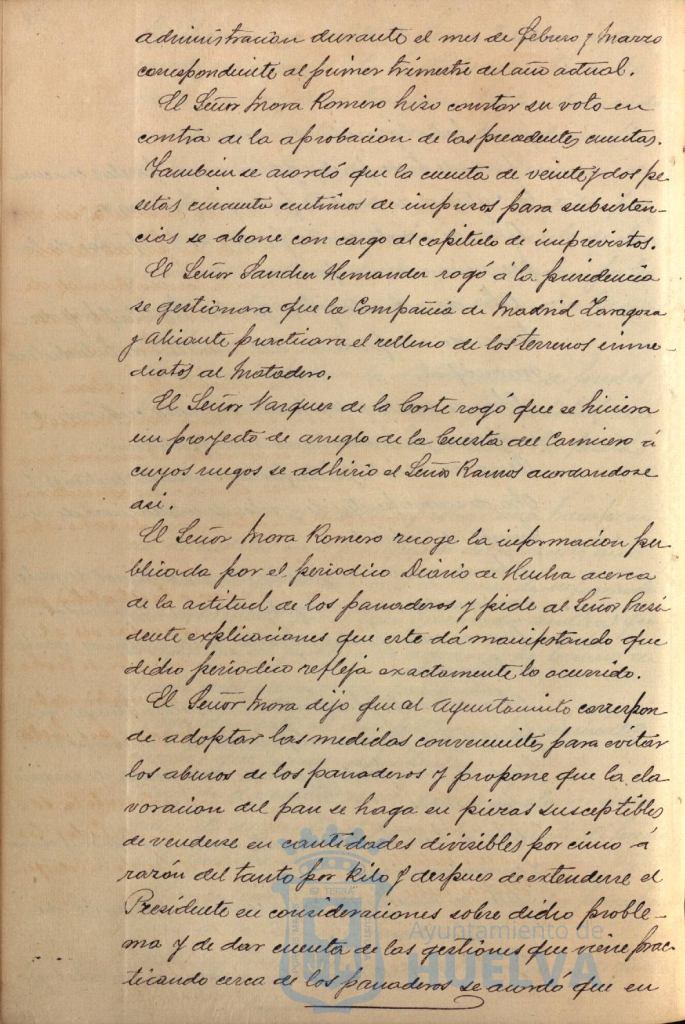 administracion durante el mes de febrero y Marzo
correspondiente al primer trimestre del año actual.
El Señor Mora Romero hizo constar su voto en
contra de la aprobacion de las precedentes cuentas.
Tambien se acordó que la cuenta de veinte y dos pe-
setas cincuenta centimos de impresos para subsisten-
cias se abone con cargo al capitulo de imprevistos.
El Señor Sanchez Hernandez rogó á la presidencia
se gestionara que la Compañia de Madrid Zaragoza
y Alicante practicara el relleno de los terrenos inme-
diatos al Matadero.
El Señor Vazquez de la Corte rogó que se hiciera
un proyecto de arreglo de la Cuesta del Carnicero á
cuyos ruegos se adhirió el Señor Ramos acordandose
asi.
El Señor Mora Romero recoge la informacion pu-
blicada por el periodico Diario de Huelva acerca
de la actitud de los panaderos y pide al Señor Presi-
dente explicaciones que este dá manifestando que
dicho periodico refleja exactamente lo ocurrido.
El Señor Mora dijo que al Ayuntamiento correspon-
de adoptar las medidas convenientes para evitar
los abusos de los panaderos y propone que la ela
voracion del pan se haga en piezas susceptibles
de venderse en cantidades divisibles por cinco á
razón del tanto por Kilo y despues de extenderse el
Presidente en consideraciones sobre dicho proble-
ma y de dar cuenta de las gestiones que viene prac-
ticando cerca de los panaderos se acordó que en
Ayuntamiento de
HUELVA